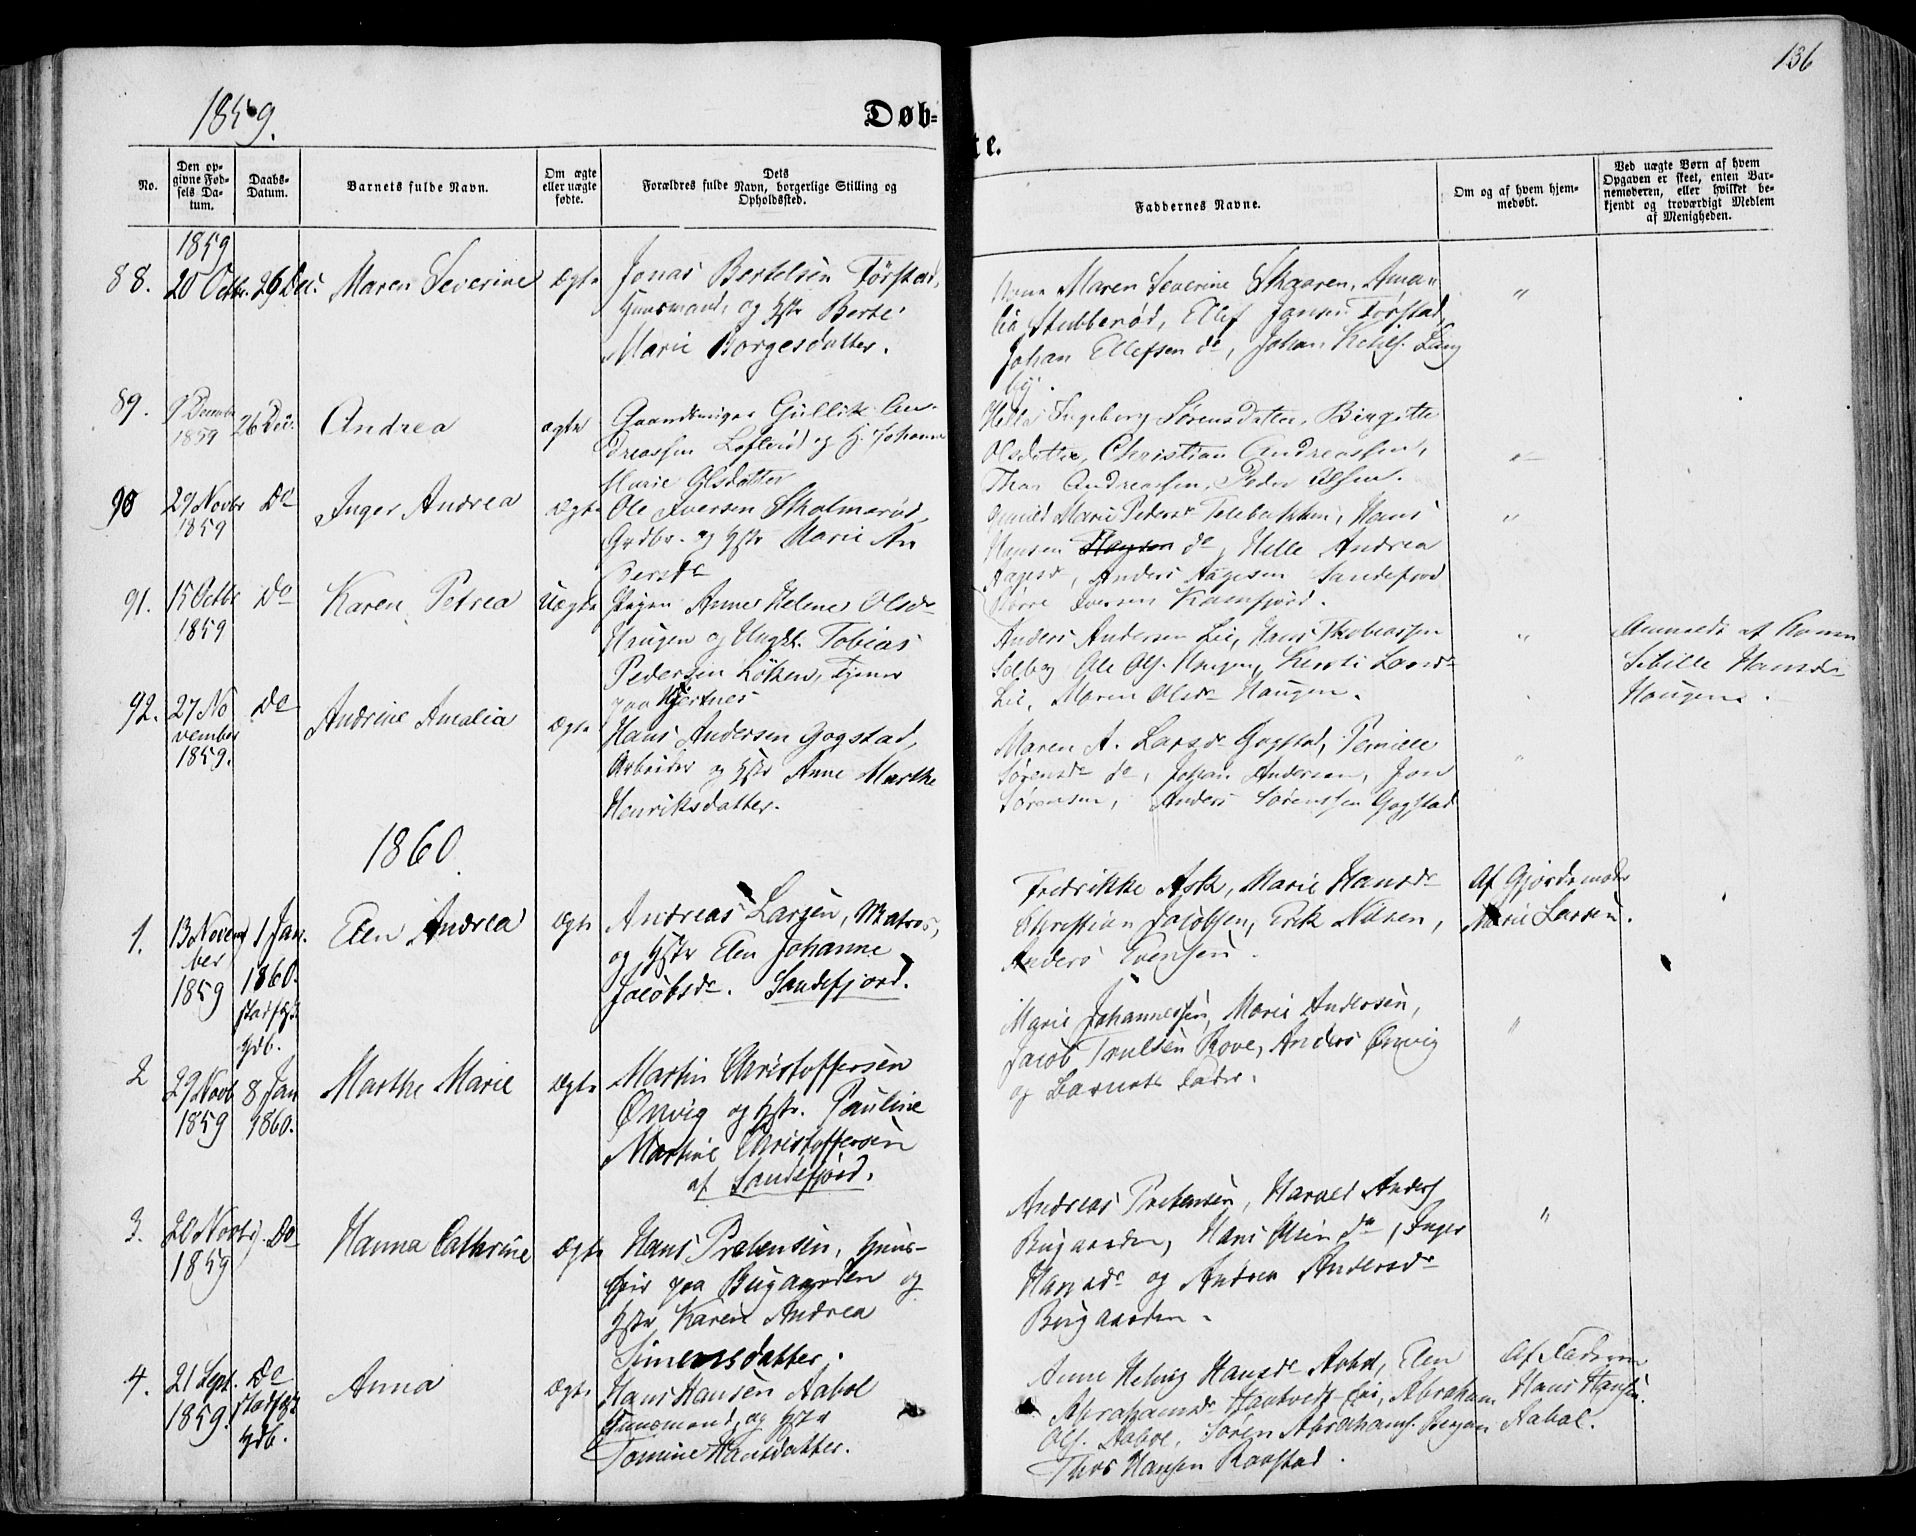 136
1859.
Døb-
te.
No.
Den op-
givne Fød-
sels Da-
tum.
Daabs-
Datum.
Barnets fulde Navn.
Om ægte
eller uægte
fødte.
Dets
Forældres fulde Navn, borgerlige Stilling og
Opholdssted.
Faddernes Navne.
Om og af hvem hjem-
medøbt.
Ved uægte Børn af hvem
Opgaven er skeet, enten Bar-
nemoderen, eller hvilket be-
kjendt og troværdigt Medlem
af Menigheden.
1859
88. 20 Octbr. 26 Dec. Maren Severine ægte Jonas Bertelsen Tørstad,
Huusmand, og Hstr Berte
Marie Borgesdatter.
Maren Severine Skaaren, Ama-
lia Stubberød, Ellef Jansen Tørstad,
Johan Ellefsen do, Johan Ketils. Lang
by.
89. 9 Decembr
1859 26 Dec. Andrea ægte Gaardbruger Gullik An-
dreassen Løfterød og H. Johanne
Marie Olsdatter
Helle Ingeborg Sørensdatter, Birgitte
Olsdatter, Christian Andreassen,
Thor Andreassen, Peder Olsen.
"
90 29 Novbr
1859 Do Inger Andrea ægte Ole Iversen Skolmerød,
Grdbr. og Hstr Marie An
dersdr
Marie Pedersdr Telebakken, Hans
Hansen do, Helle Andrea
Aagesdr, Anders Aagesen Sandefjord
Iversen Kamfjord.
"
91. 15 Octbr
1859 Do Karen Petrea Uægte Pigen Anne Helene Olsdr
Haugen og Ungk. Tobias
Pedersen Løken, Tjener
paa Hjertnes
Anders Andersen Lie, Hans Thobiassen
Solberg Ole Ols. Haugen, Kersti Larsdr
Lie, Maren Olsdr Haugen.
"
Anmeldt af Karen
Sibille Hansdr
Haugen.
92. 27 No
vember
1859. Do Andrine Amalia ægte Hans Andersen Gogstad,
Arbeider og Hstr Anne Marthe
Henriksdatter.
Maren A. Larsdr Gogstad, Pernille
Sørensdr do, Johan Andersen, Jon
Sørensen, Anders Sørenssen Gogstad
"
1860.
1. 13 Novem
ber
1859 1 Jan.
1860.
stadfst.
Hdb. Elen Andrea ægte Andreas Larsen, Matros,
og Hstr Elen Johanne
Jacobsdr. Sandefjord.
Fredrikke Ask, Marie Hansdr
Christian Jacobsen, Erik Nilsen,
Anders Evensen.
Af Gjordemoder
Marie Larsen.
2 29 Novb.
1859 8 Jan
1860. Marthe Marie ægte Martin Christoffersen
Ørvig og Hstr. Pauline
Martine Christoffersen
af Sandefjord.
Marie Johannessen, Marie Andersen,
Jacob Truelsen Rove, Anders Ørvig
og Barnets Fader.
"
3. 20 Novbr
1859 Do Hanna Cathrine ægte Hans Prebensen, Huus-
eier paa Bugaarden og
Hstr Karen Andrea
Simensdatter.
Andreas Prebensen, Harald Anders.
Bugaarden, Hans do, Inger
Hansdr og Andrea Andersdr
Bugaarden.
"
4. 21 Sept.
1859. Do
stadfst.
Hdb. Anna ægte Hans Hansen Aabol
Huusmand, og Hstr
Tomine Hansdatter.
Anne Helvig Hansdr Aabol, Elen
Abrahamsdr Hautvedt Eie, Abraham
Ols. Aabol, Søren Abrahams. Bergan
Thor Hansen Raastad.
Af Faderen
Hans Hansen
Aabol.